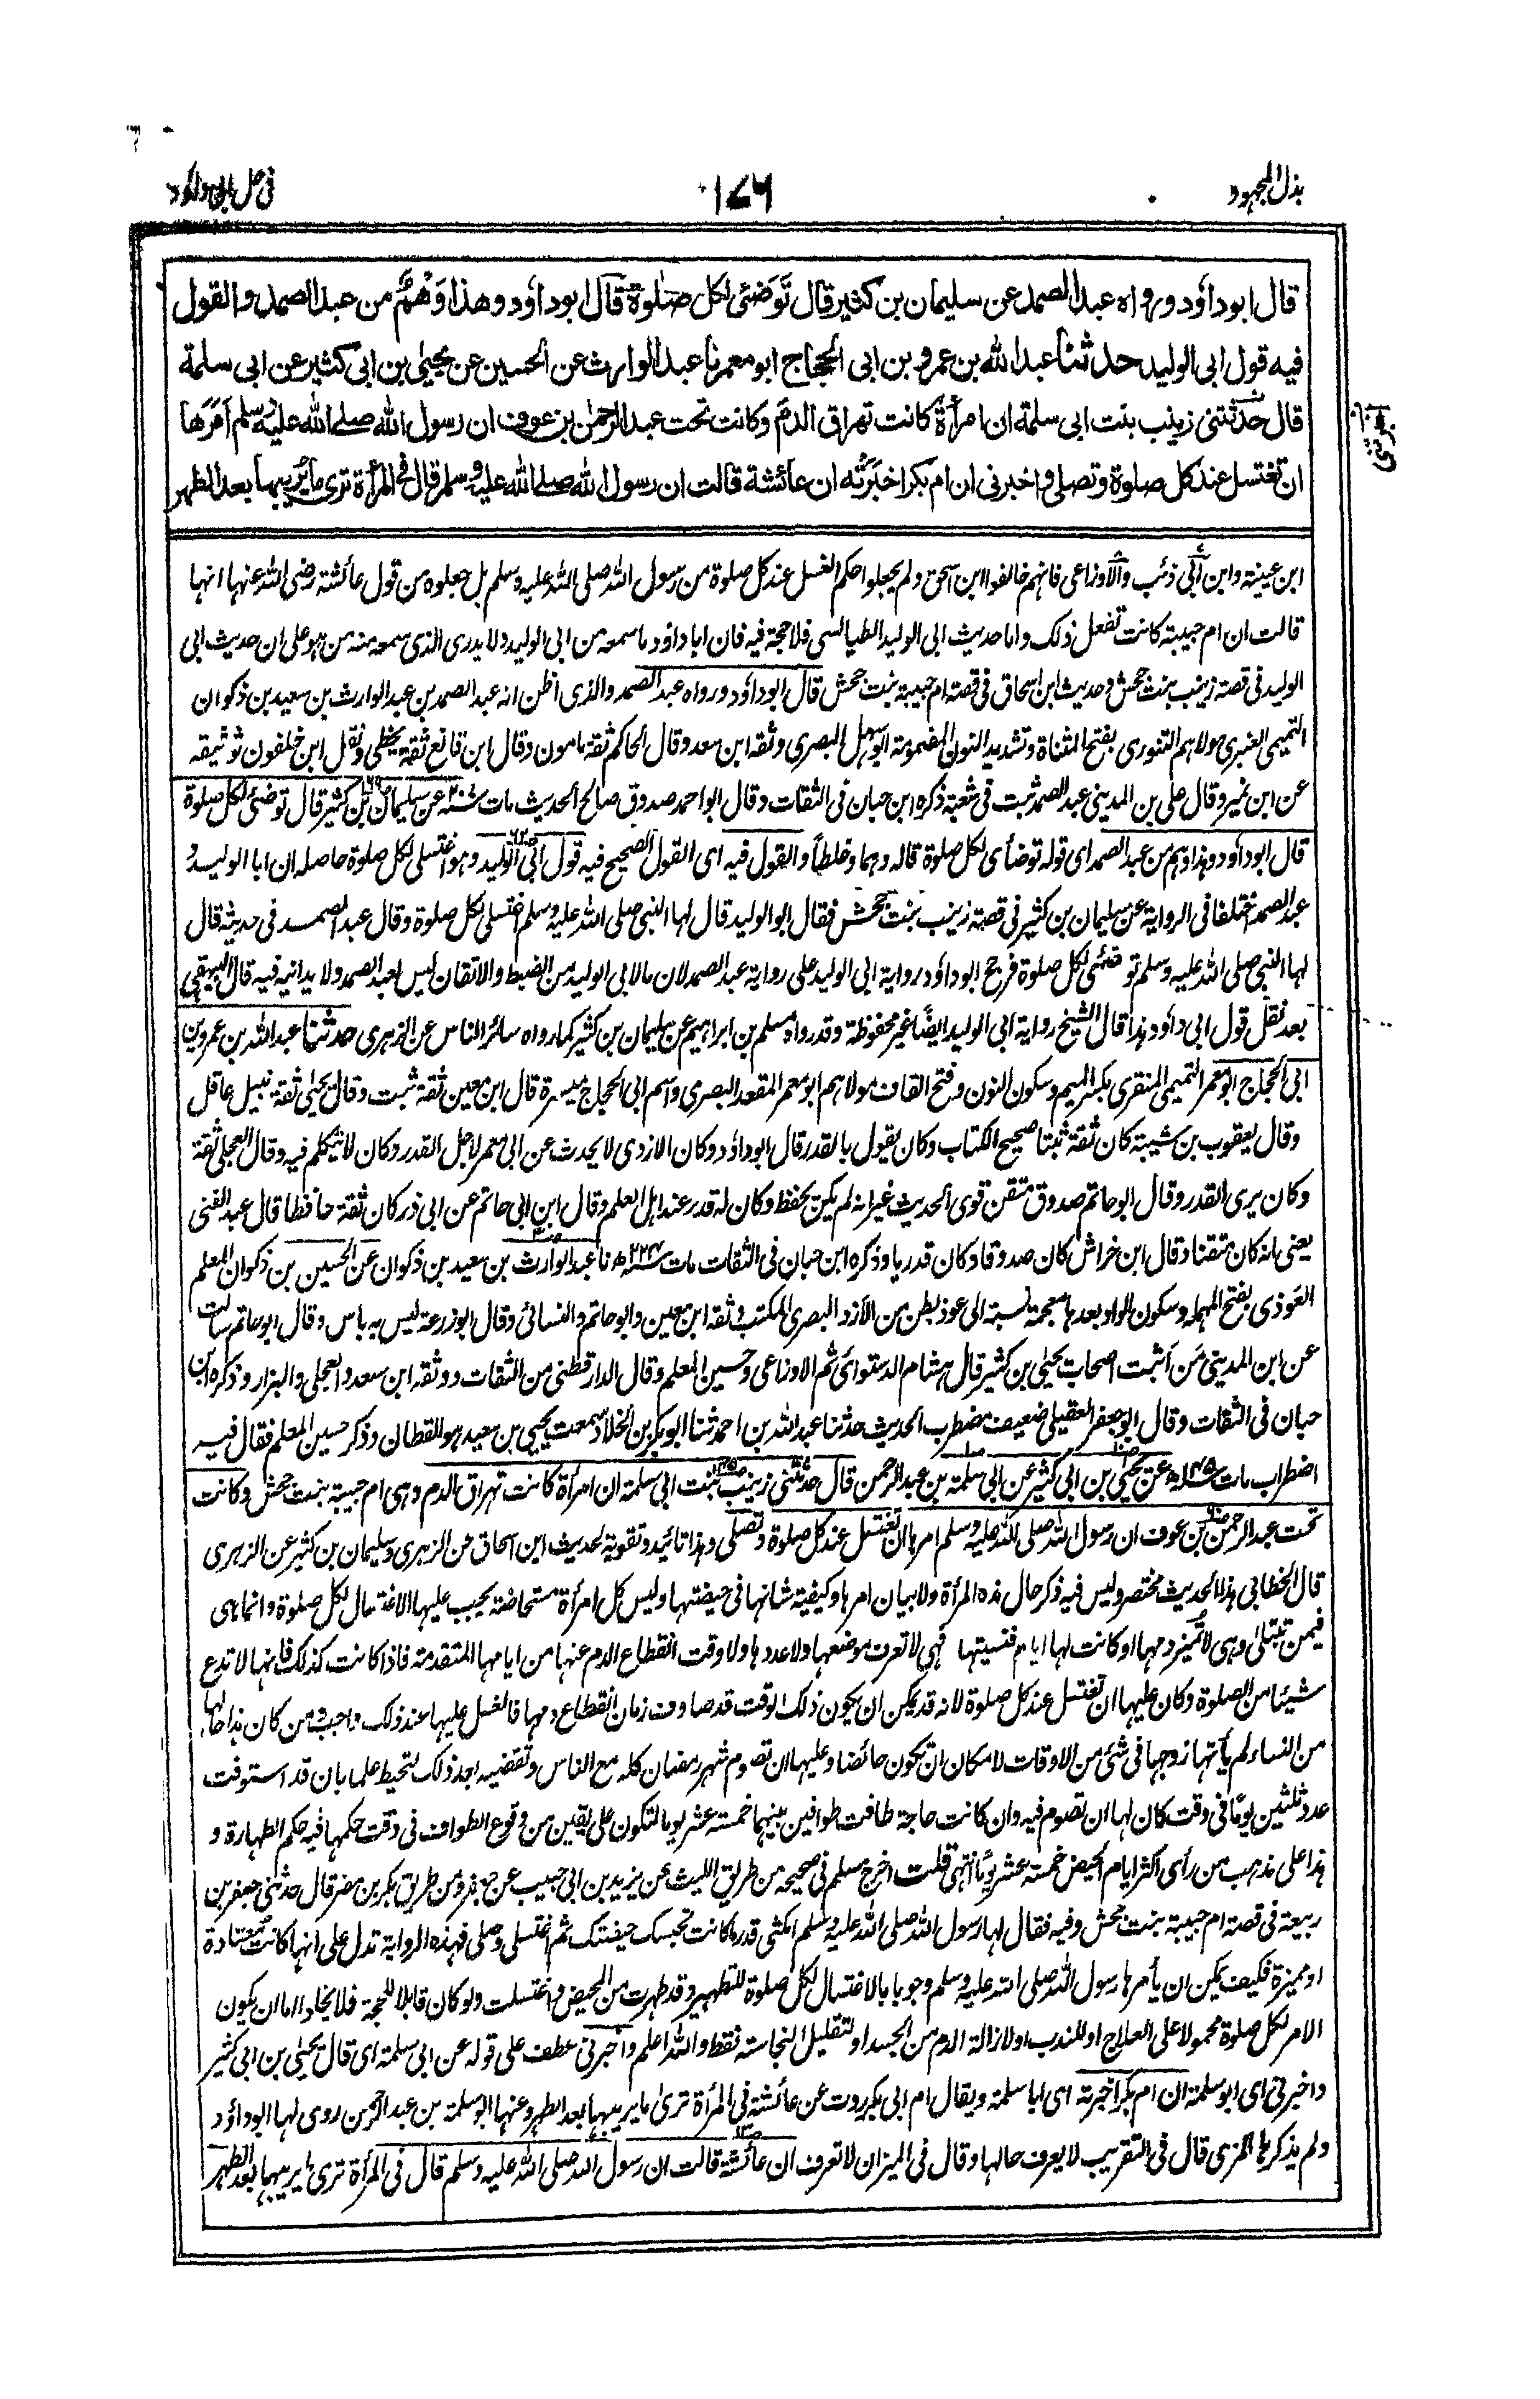 بذل المجهود
١٧٦
في حل ابي داؤد
قال ابوداؤد ورواه عبد الصمد عن سليمان بن كثير قال تَوَضّئى لكل صلٰوة قال ابوداؤد وهذا وَهْمٌ من عبد الصمد والقول
فيه قول ابى الوليد حدثنا عبد الله بن عمرو بن ابى الحجاج ابو معمر نا عبد الوارث عن الحسين عن يحيىٰ بن ابى كثير عن ابى سلمة
قال حدثتنى زينب بنت ابى سلمة ان امرأة كانت تهراق الدم وكانت تحت عبد الرحمٰن بن عوف ان رسول الله صلے الله عليه وسلم اَمَرَها
ان تغتسل عند كل صلوة وتصلى واخبرنى ان ام بكر اخبَرَتْه ان عائشة قالت ان رسول الله صلے الله عليه وسلم قال فى المرأة ترى ما يُريبها بعد الطهر
ابن عيينة وابن ابى ذئب والاوزاعى فانهم خالفوا ابن اسحق ولم يجعلوا حكم الغسل عند كل صلوة من رسول الله صلى الله عليه وسلم بل جعلوه من قول عائشة رضى الله عنها انها
قالت ان ام حبيبة كانت تفعل ذلك واما حديث ابى الوليد الطيالسى فلا حجة فيه فان اباداؤد ما سمعه من ابى الوليد ولا يدرى الذى سمعه منه من هو على ان حديث ابى
الوليد فى قصة زينب بنت جحش وحديث ابن اسحاق فى قصة ام حبيبة بنت جحش قال ابوداؤد ورواه عبد الصمد والذى اظن انه عبد الصمد بن عبد الوارث بن سعيد بن ذكوان
التميمى العنبرى مولاهم التنورى بفتح المثناة وتشديد النون المضمومة ابو سهل البصرى وثقه ابن سعد وقال الحاكم ثقة مامون وقال ابن قانع ثقة يخطى ونقل ابن خلفون توثيقه
عن ابن نمير وقال على بن المدينى عبد الصمد ثبت فى شعبة ذكره ابن حبان فى الثقات وقال ابو احمد صدوق صالح الحديث مات سنة ٢٠٧ عن سليمان بن كثير قال توضئى لكل صلوة
قال ابوداؤد وهذا وهم من عبد الصمد اى قوله توضأى لكل صلوة قاله وهما وغلطاً والقول فيه اى القول الصحيح فيه قول ابى الوليد وهو اغتسلى لكل صلوة حاصله ان ابا الوليد و
عبد الصمد اختلفا فى الرواية عن سليمان بن كثير فى قصة زينب بنت جحش فقال ابو الوليد قال لها النبى صلى الله عليه وسلم اغتسلى لكل صلوة وقال عبد الصمد فى حديثه قال
لها النبى صلى الله عليه وسلم توضئى لكل صلوة فرجح ابوداؤد رواية ابى الوليد على رواية عبد الصمد لان ما لابى الوليد من الضبط والاتقان ليس لعبد الصمد ولا يدانيه فيه قال البيهقى
بعد نقل قول ابى داؤد هذا قال الشيخ رواية ابى الوليد ايضًا غير محفوظة وقد رواه مسلم بن ابراهيم عن سليمان بن كثير كما رواه سائر الناس عن الزهرى حدثنا عبد الله بن عمرو بن
ابى الحجاج ابو معمر التميمى المنقرى بكسر الميم وسكون النون وفتح القاف مولاهم ابو معمر المقعد البصرى واسم ابى الحجاج ميسرة قال ابن معين ثقة ثبت وقال يحيٰى ثقة نبيل عاقل
وقال يعقوب بن شيبة كان ثقة ثبتا صحيح الكتاب وكان يقول بالقدر قال ابوداؤد وكان الازدى لا يحدث عن ابى معمر لاجل القدر وكان لا يتكلم فيه وقال العجلى ثقة
وكان يرى القدر وقال ابو حاتم صدوق متقن قوى الحديث غير انه لم يكن يحفظ وكان له قدر عند اهل العلم وقال ابن ابى حاتم عن ابى ذر كان ثقة حافظا قال عبد الغنى
يعنى انه كان متقنا وقال ابن خراش كان صدوقا وكان قدريا وذكره ابن حبان فى الثقات مات سنة ٢٢٤ ه نا عبد الوارث بن سعيد بن ذكوان عن الحسين بن ذكوان المعلم
العَوذى بفتح المهملة وسكون الواو بعدها معجمة نسبة الى عوذ بطن من الازد البصرى المكتب وثقه ابن معين وابو حاتم والنسائى وقال ابو زرعة ليس به باس وقال ابو حاتم سالت
عن ابن المدينى مَن اثبت اصحاب يحيٰى بن كثير قال هشام الدستوائى ثم الاوزاعى وحسين المعلم وقال الدارقطنى من الثقات ووثقه ابن سعد والعجلى والبزار وذكره ابن
حبان فى الثقات وقال ابو جعفر العقيلى ضعيف مضطرب الحديث حدثنا عبد الله بن احمد ثنا ابو بكر بن الخلاد سمعت يحيى بن سعيد هو القطان وذكر حسين المعلم فقال فيه
اضطراب مات سنة ١٤٥ ه عن يحيى بن ابى كثير عن ابى سلمة بن عبد الرحمن قال حدثتنى زينب بنت ابى سلمة ان امرأة كانت تهراق الدم وهى ام حبيبة بنت جحش وكانت
تحت عبد الرحمن بن عوف ان رسول الله صلى الله عليه وسلم امرها ان تغتسل عند كل صلوة وتصلى وهذا تائيد وتقوية لحديث ابن اسحاق عن الزهرى وسليمان بن كثير عن الزهرى
قال الخطابى هذا الحديث مختصر وليس فيه ذكر حال هذه المرأة ولا بيان امرها وكيفية شانها فى حيضتها وليس كل امرأة مستحاضة يجيب عليها الاغتسال لكل صلوة وانما هى
فيمن تبتلى وهى لا تميز دمها او كانت لها ايام فنسيتها فهى لا تعرف موضعها ولا عددها ولا وقت انقطاع الدم عنها من ايامها المتقدمة فاذا كانت كذلك فانها لا تدع
شيئا من الصلوة وكان عليها ان تغتسل عند كل صلوة لانه قد يمكن ان يكون ذلك الوقت قد صادف زمان انقطاع دمها فالغسل عليها عند ذلك واجب ومن كان هذا حالها
من النساء لم يأتها زوجها فى شئ من الاوقات لامكان ان تكون حائضا وعليها ان تصوم شهر رمضان كله مع الناس وتقضيه بعد ذلك لتحيط علما بان قد استوفت
عدد ثلثين يومًا فى وقت كان لها ان تصوم فيه وان كانت حاجة طافت طوافين بينهما خمسة عشر يوما لتكون على يقين من وقوع الطواف فى وقت حكمها فيه حكم الطهارة و
هذا على مذهب من رأى اكثر ايام الحيض خمسة عشر يومًا انتهى قلت اخرج مسلم فى صحيحه من طريق الليث عن يزيد بن ابى حبيب عن جعفر ومن طريق بكر بن مضر قال حدثنى جعفر بن
ربيعة فى قصة ام حبيبة بنت جحش وفيه فقال لها رسول الله صلى الله عليه وسلم امكثى قدر ما كانت تحبسك حيضتك ثم اغتسلى وصلى فهذه الرواية تدل على انها كانت معتادة
او مميزة فكيف يمكن ان يأمرها رسول الله صلى الله عليه وسلم وجوبا بالاغتسال لكل صلوة للتطهير وقد طهرت من المحيض واغتسلت ولو كان قابلا للحجة فلا يخلو اما ان يكون
الامر لكل صلوة محمولا على العلاج او للندب او لازالة الدم من الجسد او لتقليل النجاسة فقط والله اعلم واخبرنى عطف على قوله عن ابى سلمة اى قال يحيٰى بن ابى كثير
واخبرنى اى ابو سلمة ان ام بكر اخبرته اى ابا سلمة ويقال ام ابى بكر روت عن عائشة فى المرأة ترى ما يريبها بعد الطهر وعنها ابو سلمة بن عبد الرحمن روى لها ابوداؤد
ولم يذكرها المزى قال فى التقريب لا يعرف حالها وقال فى الميزان لا تعرف ان عائشة قالت ان رسول الله صلى الله عليه وسلم قال فى المرأة ترى ما يريبها بعد الطهر